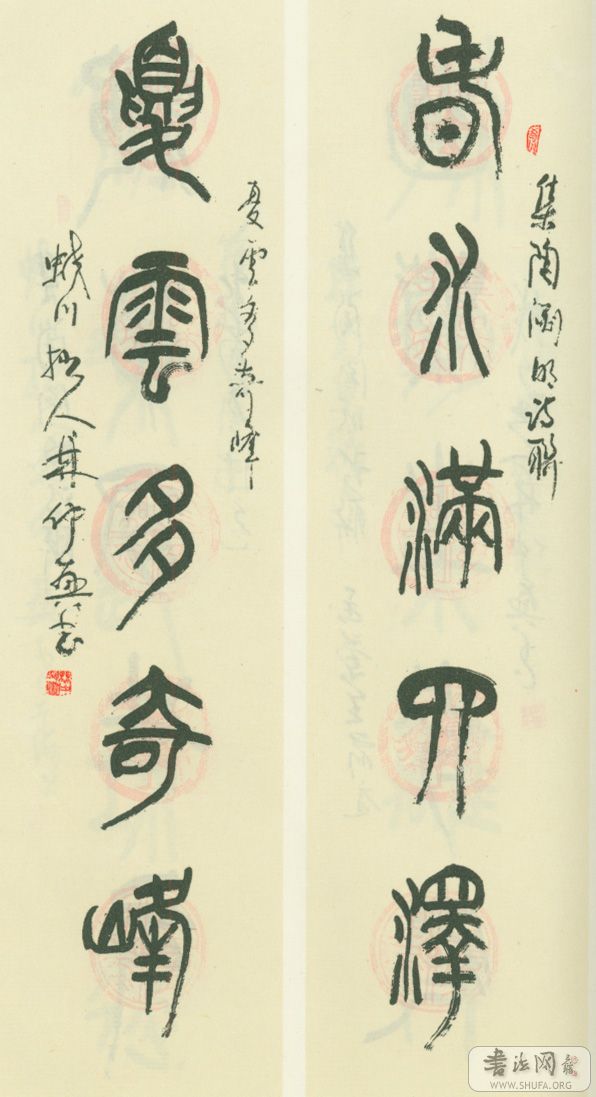 集陶淵明詩聯
春水滿四澤
夏雲多奇峰
夏雲多奇峰
川拙人
書法网
WWW.SHUFA.ORG